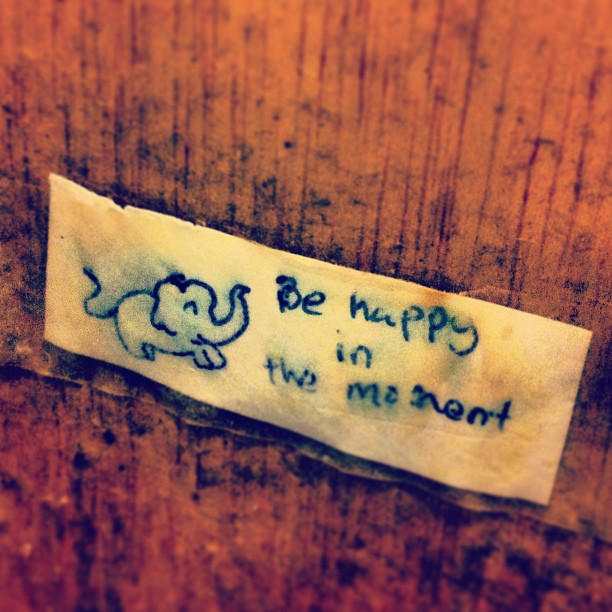 Be happy
in
the moment